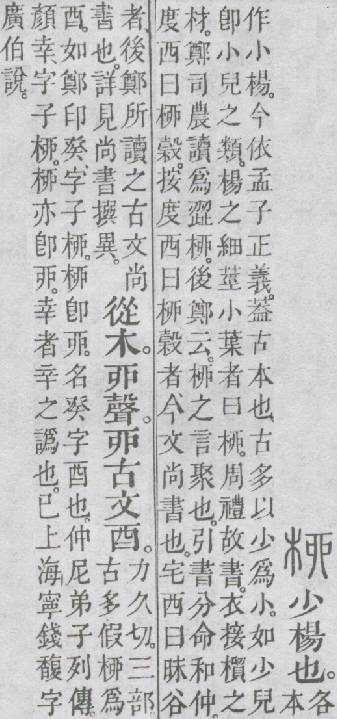 桺少楊也。各本
作小楊。今依孟子正義。葢古本也。古多以少爲小。如少兒
卽小兒之類。楊之細莖小葉者曰桺。周禮故書。衣接橮之
材。鄭司農讀爲澀桺。後鄭云。桺之言聚也。引書分命和仲
度西曰桺穀。按度西曰桺穀者。今文尚書也。宅西曰昧谷
者。後鄭所讀之古文尚
書也。詳見尚書撰異。
從木。丣聲。丣古文酉。
力久切。三部。
古多假桺爲
酉。如鄭印癸。字子桺。桺卽丣。名癸字酉也。仲尼弟子列傳。
顏幸字子桺。桺亦卽丣。幸者辛之譌也。已上海寧錢馥字
廣伯說。